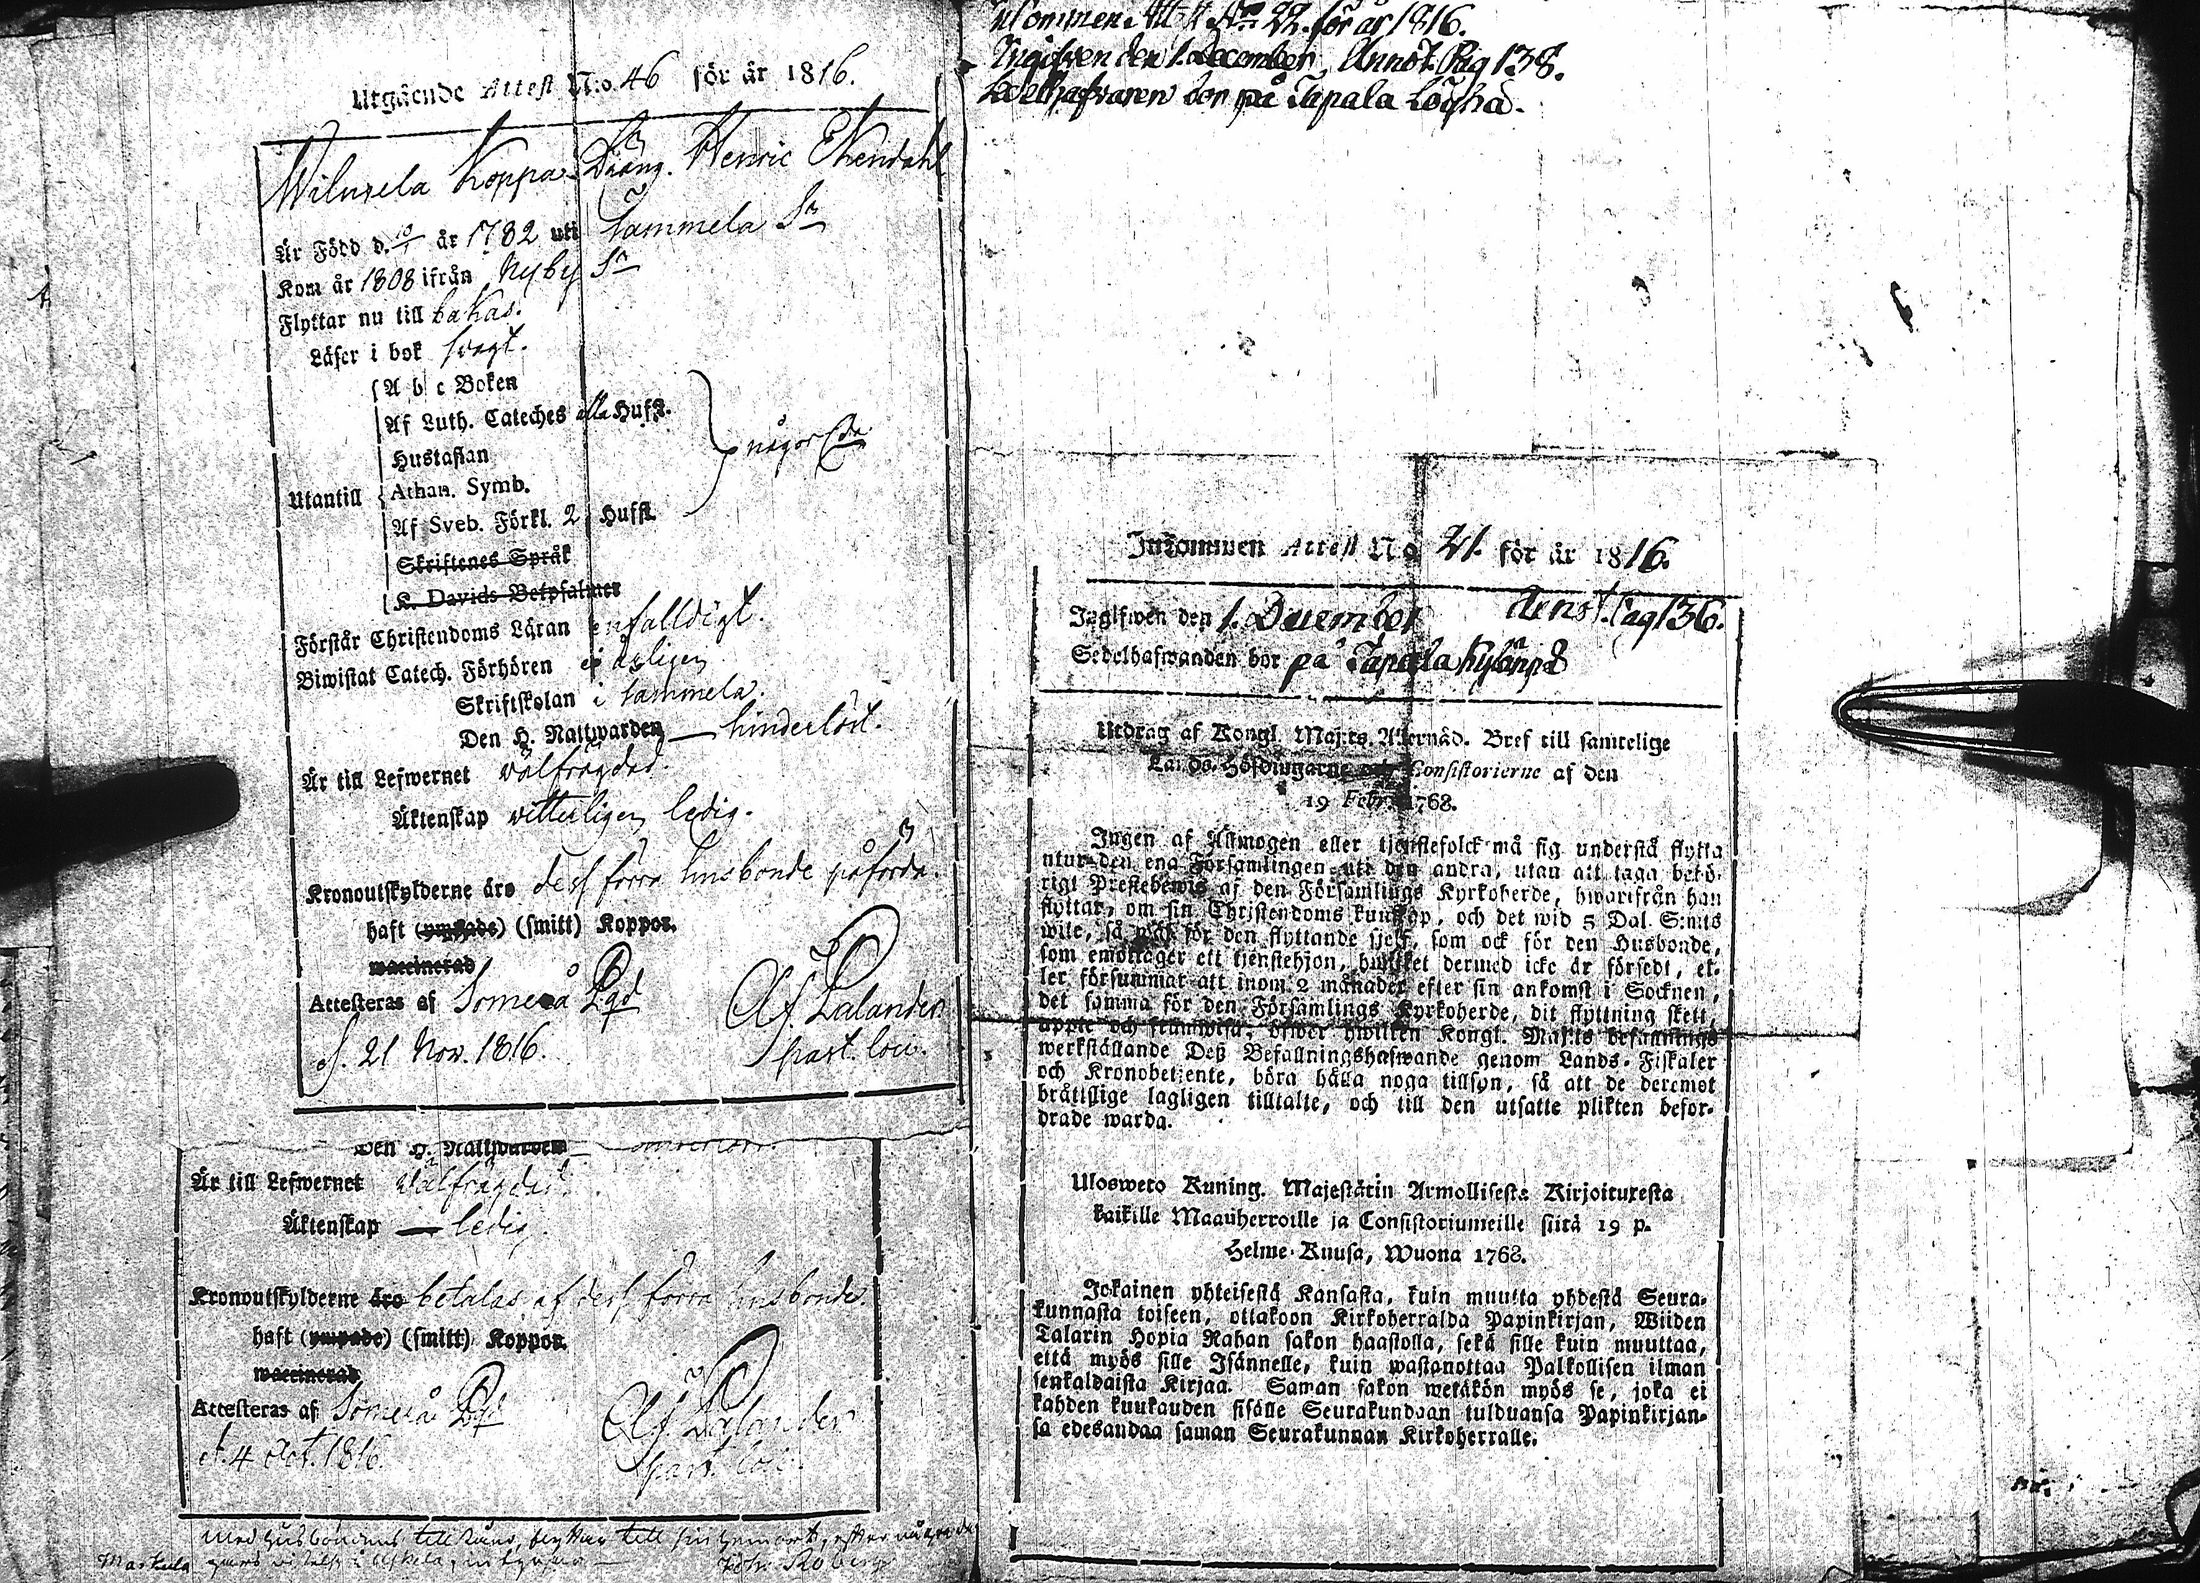 Utgående Attest N:o 46 för år 1816.
Koppa Dräng. Henric Ekendahl
Är Född d. 10/1 år 1782 uti Tammela Sn
Kom år 1808 ifrån Nyby Sn
Flyttar nu till bakas.
Läser i bok svagt.
A b c Boken
Af Luth. Cateches alla Hufst.
Hustaflan
någorlda
Utantill Athan. Symb.
Af Sveb. Förkl. 2 Hufst.
Skriftenes Språk
K. Davids Betpsalmer
Förstår Christendoms Läran enfalldigt.
Biwistat Catech. Förhören årligen
Skriftskolan i Tammela.
Den H. Nattwarden — hinderlöst.
Är till Lefwernet välfrägdad.
Äktenskap vitterligen ledig.
Kronoutskylderne äro dess förra husbonde påförda.
haft (ympade) (smitt) Koppor.
waccinerad
Attesteras af Somero Pgd Ad. J. Palander
d. 21 Nov. 1816. past. loci.
Den H. Nattwarden
Är till Lefwernet välfrägdad.
Äktenskap — ledig.
Kronoutskylderne äro betalas af dess förra husbonde.
haft (ympade) (smitt) Koppor.
waccinerad
Attesteras af Somero Pgd Ad. J. Palander
d. 4 Oct. 1816. past. loci.
med husbondens till flyttar till sin hemort, efter
Joh. Roberg
Inkommen Attest No 22. för år 1816.
Ingifven den 1. December, Annot. Pag 138.
Sedelhafvaren bor på Tapala
Inkommen Attest No 21. för år 1816.
Ingifwen den 1. December Annot. Pag 136.
Sedelhafwanden bor på Tapala
Utdrag af Kongl. Maj:ts. Allernåd. Bref till samtelige
Lands-Höfdingarne och Consistorierne af den
19 Febr. 1768.
Ingen af Allmogen eller tjenstefolck må sig understå flytta
utur den ena Församlingen uti den andra, utan att taga behö-
rigt Prestebewis af den Församlings Kyrkoherde, hwarifrån han
flyttar, om sin Christendoms kunskap, och det wid 5 Dal. S:mts
wite, så wäl för den flyttande sjelf, som ock för den Husbonde,
som emottager ett tjenstehjon, hwilket dermed icke är försedt, el-
ler försummar att inom 2 månader efter sin ankomst i Socknen,
det samma för den Församlings Kyrkoherde, dit flyttning skett,
uppte och framwisa: öfwer hwilken Kongl. Maj:ts befallnings
werkställande Deß Befallningshafwande genom Lands-Fiskaler
och Kronobetjente, böra hålla noga tillsyn, så att de deremot
bråtslige lagligen tilltalte, och till den utsatte plikten befor-
drade warda.
Ulosweto Kuning. Majestätin Armollisesta Kirjoituxesta
kaikille Maanherroille ja Consistoriumeille siitä 19 p.
Helme-Kuusa, Wuona 1768.
Jokainen yhteisestä Kansasta, kuin muutta yhdestä Seura-
kunnasta toiseen, ottakoon Kirkoherralda Papinkirjan, Wiiden
Talarin Hopia Rahan sakon haastolla, sekä sille kuin muuttaa,
että myös sille Isännelle, kuin wastanottaa Palkollisen ilman
senkaldaista Kirjaa. Saman sakon wetäkön myös se, joka ei
kahden kuukauden sisälle Seurakundaan tulduansa Papinkirjan-
sa edesandaa saman Seurakunnan Kirkoherralle.